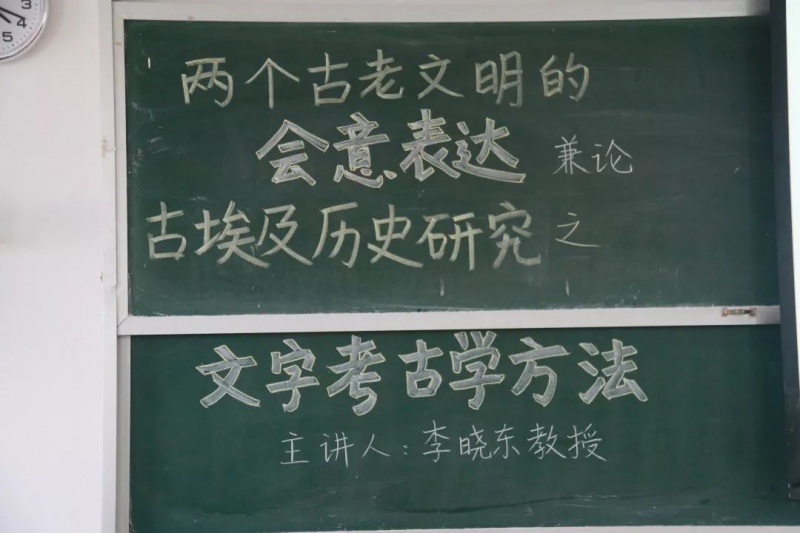 两个古老文明的
会意表达 兼论
古埃及历史研究之
文字考古学方法
主讲人：李晓东教授
3
4
5